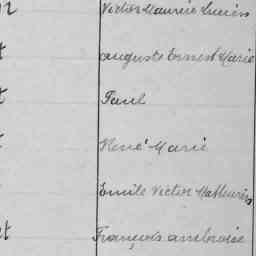 Victor Maurice Lucien
Auguste Ernest Marie
Paul
René Marie
Emile Victor Mathurin
François Ambroise